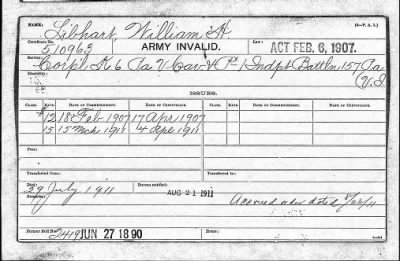 NAME: Libhart, William H. (3-P. A. I.)
Certificate No. 510963 ARMY INVALID. Law: ACT FEB. 6, 1907.
Service: Corp'l K 6 Pa V Cav & 1 Indpt Battln 157 Pa
Disability: V. I
ISSUES.
CLASS. RATE. DATE OF COMMENCEMENT. DATE OF CERTIFICATE. CLASS. RATE. DATE OF COMMENCEMENT. DATE OF CERTIFICATE.
$12 18 Feb 1907 17 Apr 1907
15 15 Mch 1911 4 Apr 1911
Transferred from: Transferred to:
Died: 29 July 1911 Bureau notified: AUG 21 1911
Accrued order dated
Former Roll No. JUN 27 1890 Home: